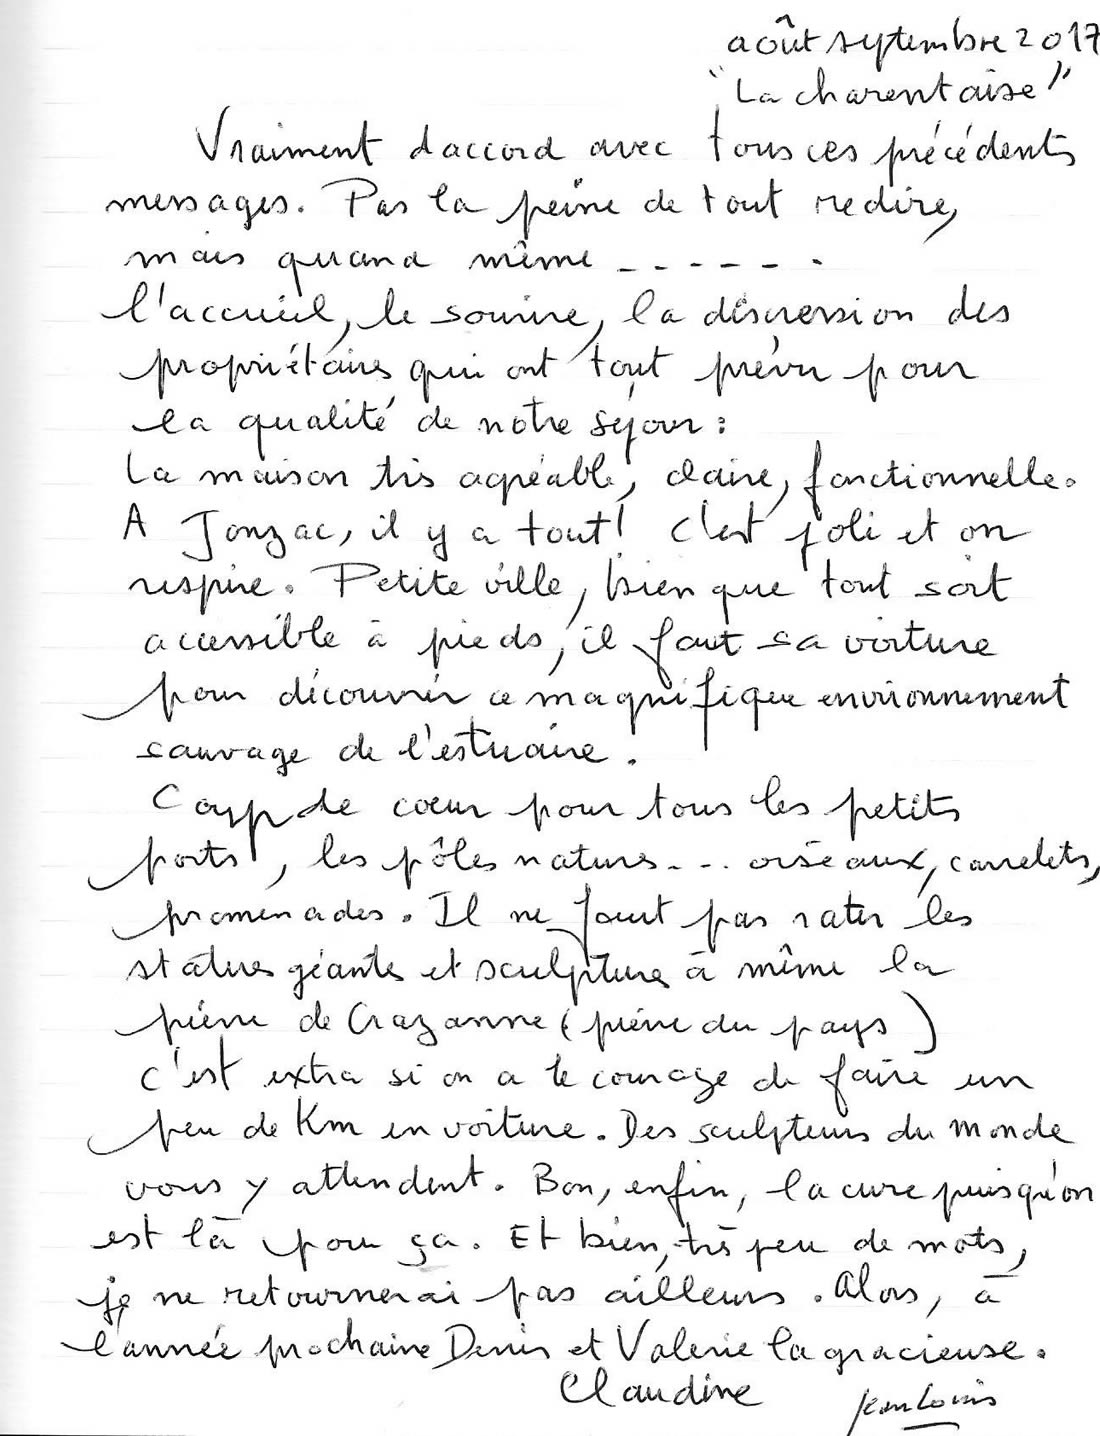 août septembre 2017
"La charentaise"
Vraiment d'accord avec tous ces précédents
messages. Pas la peine de tout redire,
mais quand même ------
l'accueil, le sourire, la discression des
propriétaires qui ont tout prévu pour
la qualité de notre séjour :
La maison très agréable, claire, fonctionnelle.
A Jonzac, il y a tout ! c'est joli et on
respire. Petite ville, bien que tout soit
accessible à pieds, il faut sa voiture
pour découvrir ce magnifique environnement
sauvage de l'estuaire.
Coup de cœur pour tous les petits
ports, les pôles natures... oiseaux, carrelets,
promenades. Il ne faut pas rater les
statues géantes et sculptures à même la
pierre de Crazanne (pierre du pays)
c'est extra si on a le courage de faire un
peu de Km en voiture. Des sculpteurs du monde
vous y attendent. Bon, enfin, la cure puisqu'on
est là pour ça. Et bien, très peu de mots,
je ne retournerai pas ailleurs. Alors, à
l'année prochaine Denis et Valerie la gracieuse.
Claudine Jean Louis